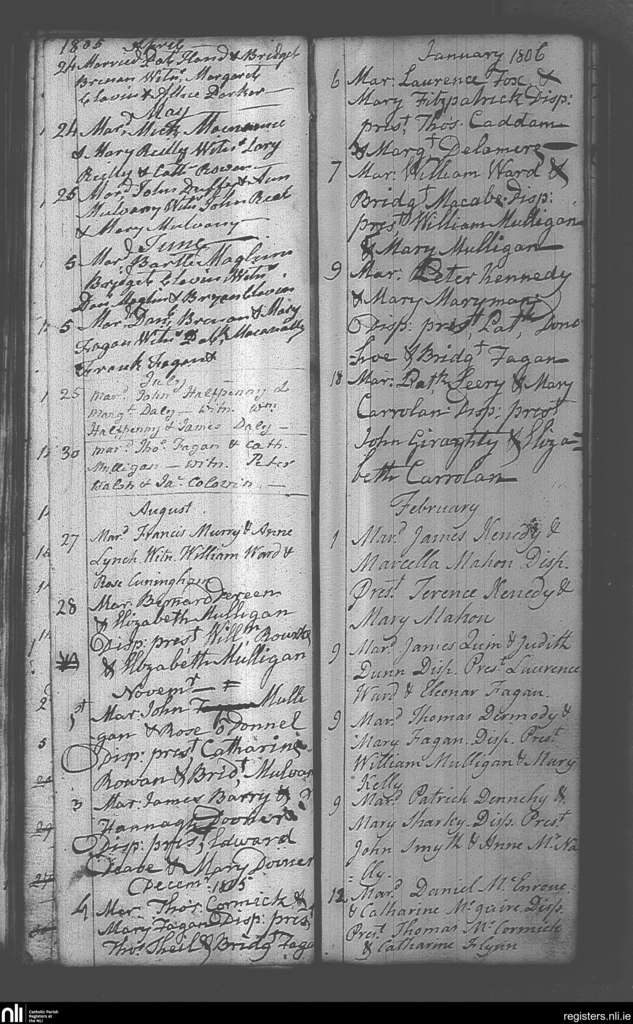 1805 April
24 Married Pat. Fland & Bridget
Brenan Witns. Margaret
Glavin & Darker
May
24 Mard. Mick
& Mary Reilly Witns. Lary
Reilly & Cath. Rowan
25 Mard. John Duffy & Ann
Mulvany Witn. John Real
& Mary Mulvany
June
5 Mard. Bartle Maglin
Bryget Glavin Witns.
Danl. Maglin & Bryan Glavin
5 Mar. Danl. Brenan & Mary
Fagan Witns. Patk.
& Frank Fagan
July
25 Mard. John Halfpenny &
Margt. Daly — Witn. Wm.
Halfpenny & James Daly —
30 Mard. Thos. Fagan & Cath.
Mulligan — Witn. Peter
Walsh & Jas.
August
27 Mard. Francis Murry & Anne
Lynch Witn. William Ward &
Rose Cuningham
28 Mar. Bernard Dereen
& Elizabeth Mulligan
Disp: prest. Willm. Rowan
& Elizabeth Mulligan
Novemr.
1st Mar. John Mulli
gan & Rose O Donnel
Disp: prest. Catharine
Rowan & Bridt. Mulvan
3 Mar. James Barry &
Hannagh
Disp: prest. Edward
& Mary
Decemr. 1805
4 Mar. Thos. Cormick &
Mary Fagan Disp: prest
Thos. Sheil & Bridgt. Faga
January 1806
6 Mar: Laurence Fox &
Mary Fitzpatrick Disp:
prest. Thos. Caddam
& Margt. Delamere
7 Mar: William Ward &
Bridgt. Macabe Disp:
prest. William Mulligan
& Mary Mulligan
9 Mar: Peter Kennedy
& Mary Maryman
Disp: prest. Patk. Dono
hoe & Bridgt. Fagan
18 Mar: Patk. Leery & Mary
Carrolan Disp: prest.
John Giraghty & Eliza=
beth Carrolan
February
1 Mard. James Kenedy &
Marcella Mahon Disp.
Prest. Terence Kenedy &
Mary Mahon
9 Mard. James Quin & Judith
Dunn Disp. Prest. Laurence
Ward & Eleonar Fagan.
9 Mard. Thomas Dermody &
Mary Fagan Disp. Prest.
William Mulligan & Mary
Kelly
9 Mard. Patrick Dennehy &
Mary Sharky Disp. Prest
John Smyth & Anne Mc.Na
-lly.
12 Mard. Daniel Mc.Enroue
& Catharine Mc.guire Disp.
Prest. Thomas Mc.Cormick
& Catharne Flynn
nli Catholic Parish
Registers at
the NLI
registers.nli.ie